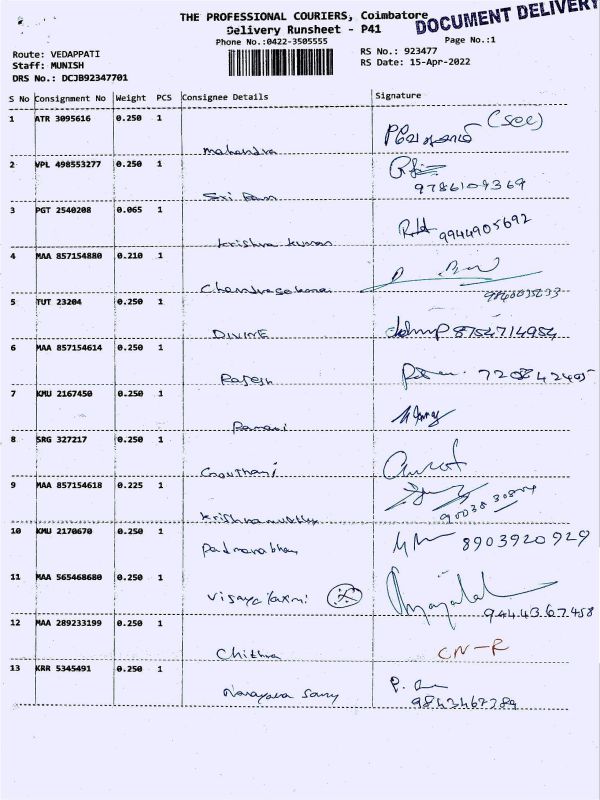 THE PROFESSIONAL COURIERS, Coimbatore
DOCUMENT DELIVERY
Delivery Runsheet - P41
Phone No.:0422-3505555
Page No.:1
Route: VEDAPPATI
RS No.: 923477
Staff: MUNISH
RS Date: 15-Apr-2022
DRS No.: DCJB92347701
S No Consignment No Weight PCS Consignee Details Signature
1 ATR 3095616 0.250 1
Mahendra
2 VPL 498553277 0.250 1
9786109369
Sri Ram
3 PGT 2540208 0.065 1
9944905692
Krishna kumar
4 MAA 857154880 0.210 1
Chandrasekara
5 TUT 23204 0.250 1
DIVINE 8754714954
6 MAA 857154614 0.250 1
Rajesh
7 KMU 2167450 0.250 1
Ramani
8 SRG 327217 0.250 1
Gouthami
9 MAA 857154618 0.225 1
Krishnamurthy
10 KMU 2170670 0.250 1
Padmanabhan 8903920929
11 MAA 565468680 0.250 1
Vijayalaxmi
9444367458
12 MAA 289233199 0.250 1
Chithra CN-R
13 KRR 5345491 0.250 1
Narayana Samy